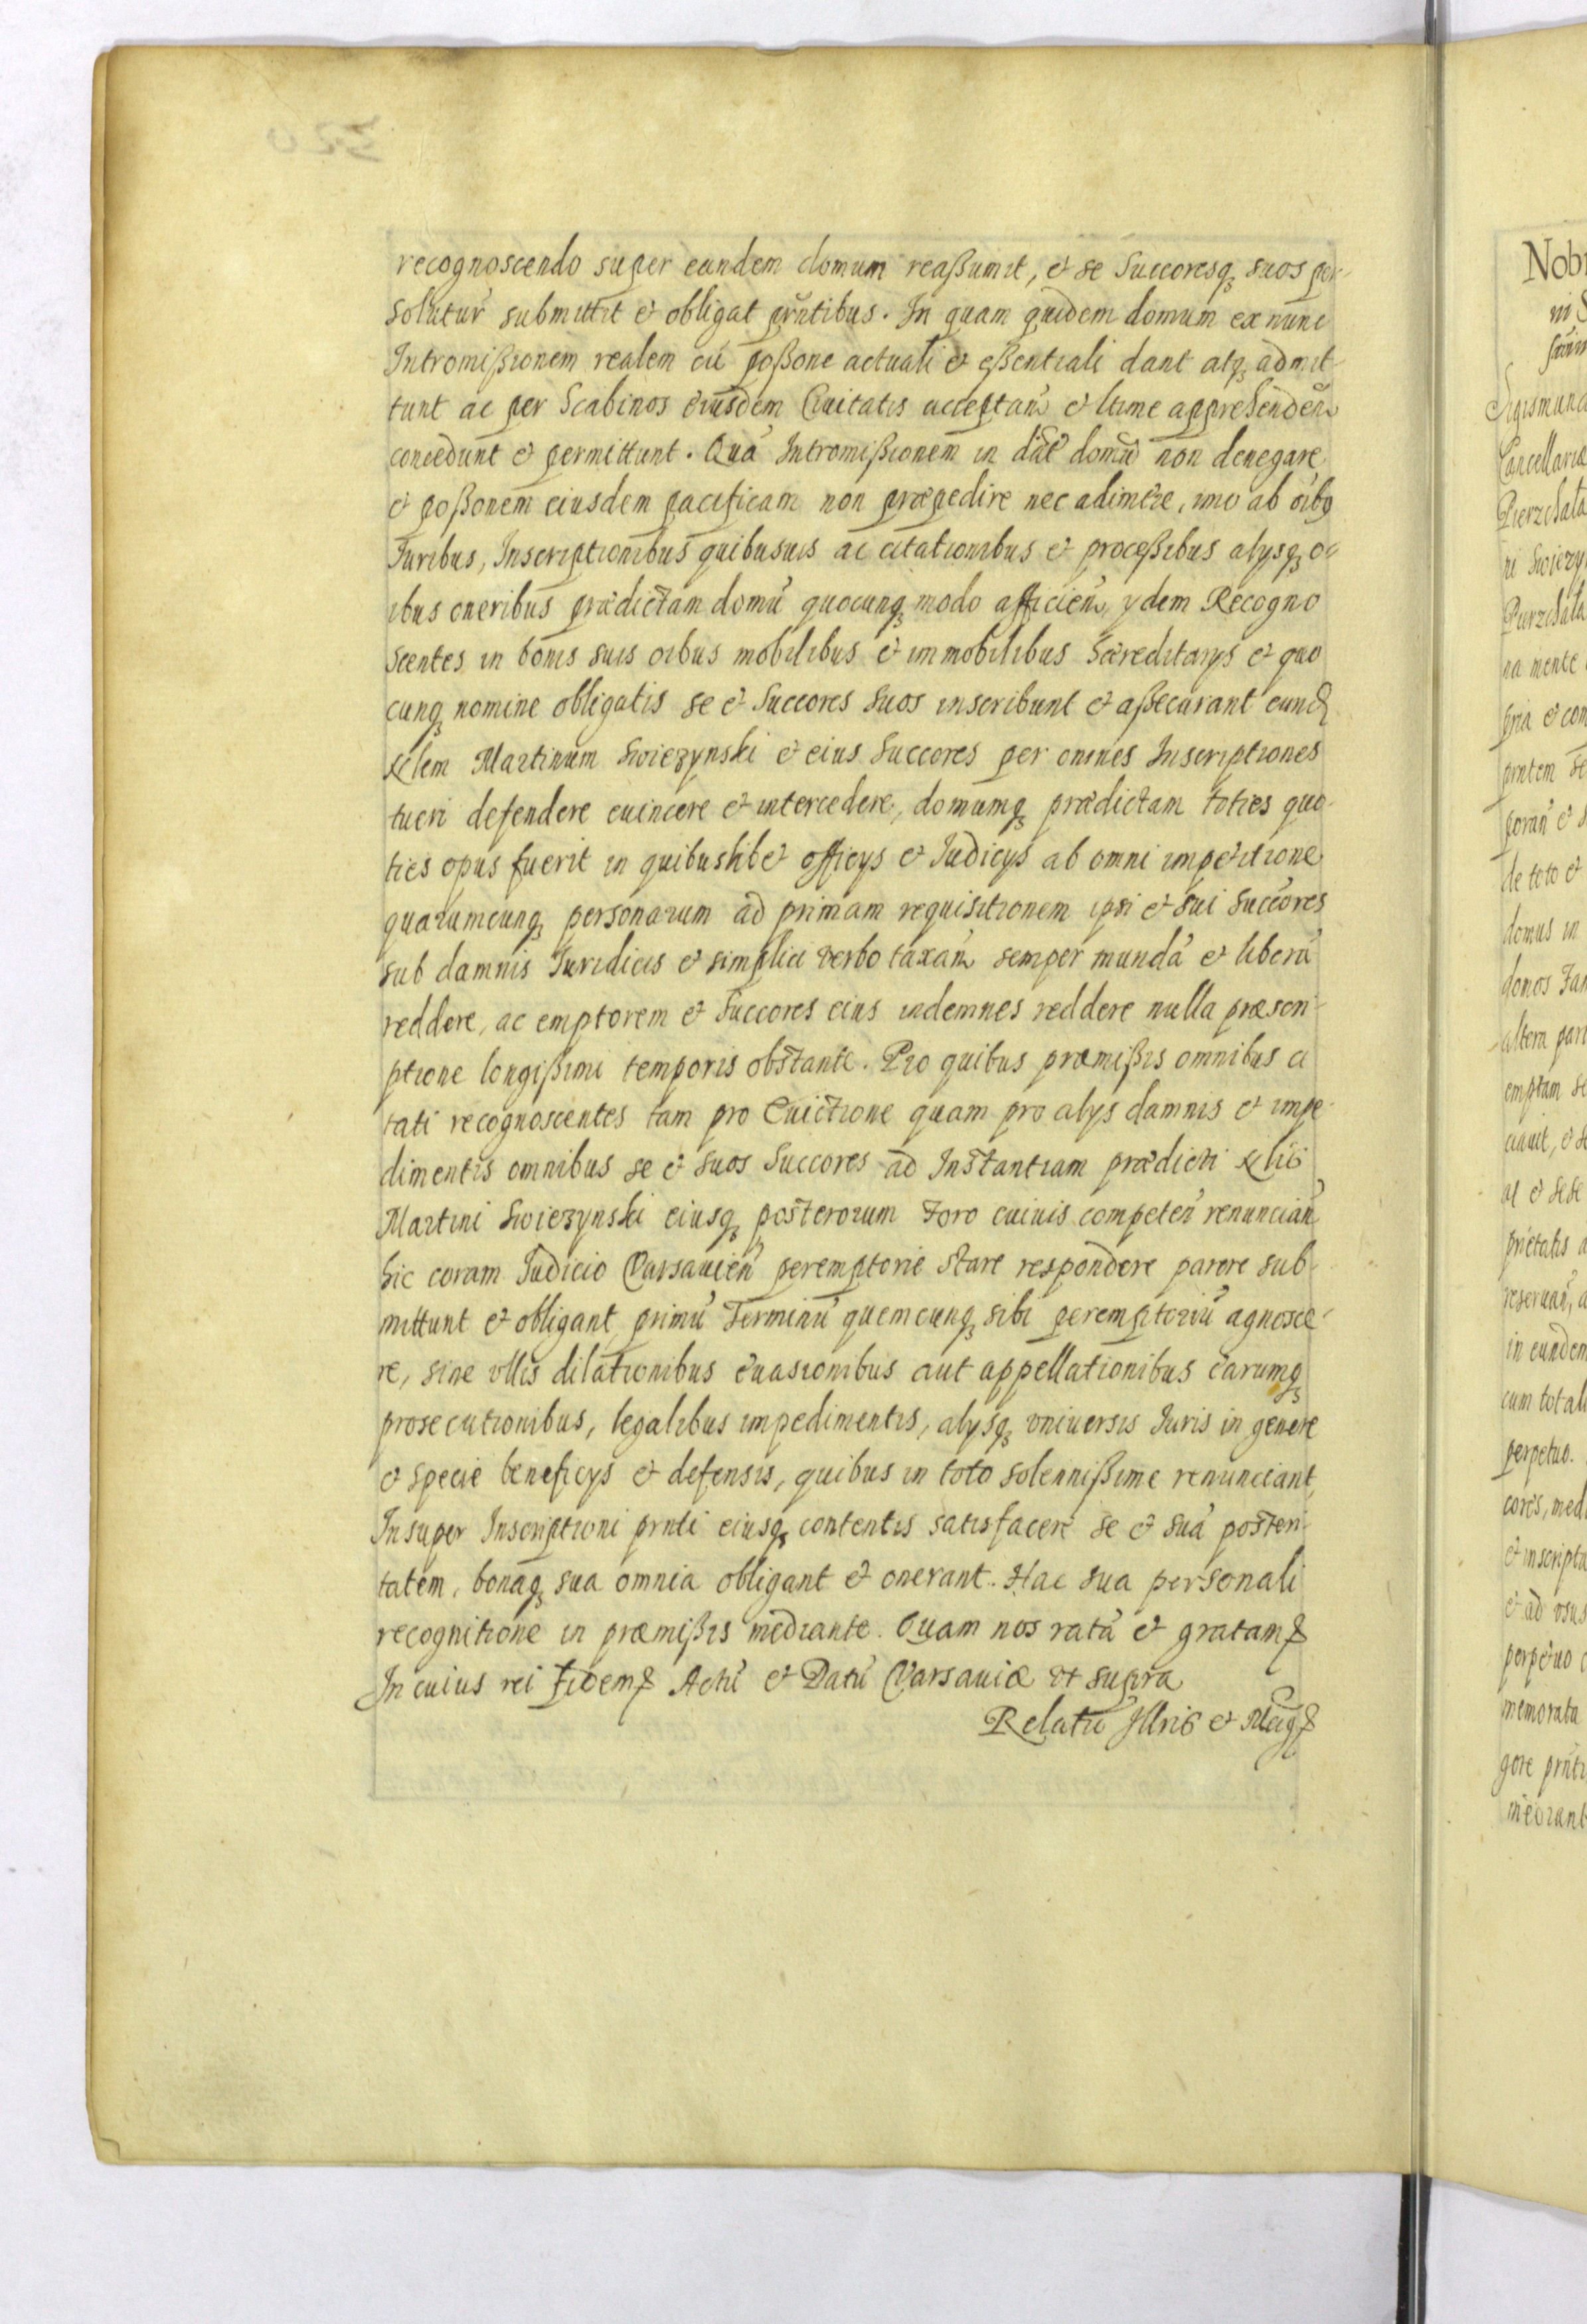 recognoscendo super eandem domum reaßumit, et se Succoresq; suos per-
solutur̃ submittit et obligat pr̃ntibus. In quam quidem domum ex nunc
Intromißionem realem cũ poßone actuali et eßentiali dant atq; admit-
tunt ac per Scabinos eiusdem Ciuitatis acceptañ et ltime apprehendeñ
concedunt et permittunt. Quã Intromißionem in dc̃ã domũ non denegare
et poßonem eiusdem pacificam non præpedire nec adimere, imo ab oĩbq
Iuribus, Inscriptionibus quibusuis ac citationibus et proceßibus alysq; o-
ibus oneribus prædictam domũ quocunq; modo afficieñ, ydem Recogno
scentes in bonis suis oibus mobilibus et immobilibus hæreditarys et quo
cunq; nomine obligatis se et Succores suos inscribunt et aßecurant eund
Xlem Martinum Swiezynski et eius Succores per omnes Inscriptiones
tueri defendere euincere et intercedere, domumq; prædictam toties quo-
ties opus fuerit in quibuslibet officys et Iudicys ab omni impetitione
quarumcunq; personarum ad primam requisitionem ipsi et sui Succores
sub damnis Iuridicis et simplici verbo taxañ semper mundã et liberã
reddere, ac emptorem et Succores eius indemnes reddere nulla præscri-
ptione longißimi temporis obstante. Pro quibus præmißis omnibus ci
tati recognoscentes tam pro Euictione quam pro alys damnis et impe-
dimentis omnibus se et suos Succores ad Instantiam prædicti Xlis
Martini Swiezynski eiusq; posterorum Foro cuiuis competeñ renunciañ
hic coram Iudicio Varsauieñ peremptorie stare respondere parere sub-
mittunt et obligant primũ Terminũ quemcunq; sibi peremptoriũ agnosce-
re, sine vllis dilationibus euasionibus aut appellationibus earumq;
prosecutionibus, legalibus impedimentis, alysq; vniuersis Iuris in genere
et specie beneficys et defensis, quibus in toto solennißime renunciant,
Insuper Inscriptioni prnti eiusq; contentis satisfacere se et suã posteri-
tatem, bonaq; sua omnia obligant et onerant. Hac sua personali
recognitione in præmißis mediante. Quam nos ratã et gratam
In cuius rei fidem Actũ et Datũ Varsauiæ vt supra
Relatũ Illris et Mag